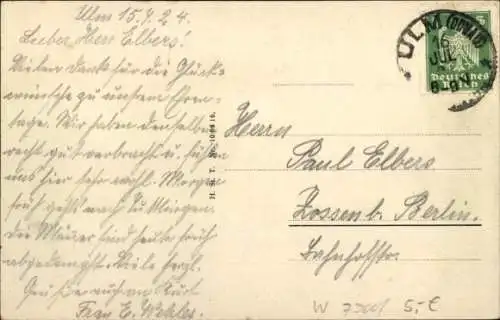 Ulm 15.7.24.
Lieber Herr Elbers!
Vielen Dank für die Glück-
wünsche zu unserem Ehren-
tage. Wir haben denselben
recht gut verbracht u. fühlen
uns hier sehr wohl. Morgen
früh geht's nach
Die Männer sind heute früh
abgedampft. Viele herzl.
Grüße auch an Kurt
Frau E.
H. S. T. No.
ULM (DONAU)
16
JUL
Deutsches
Reich
5
Herrn
Paul Elbers
Zossen b. Berlin.
Bahnhofstr.
W 7500 5,-€